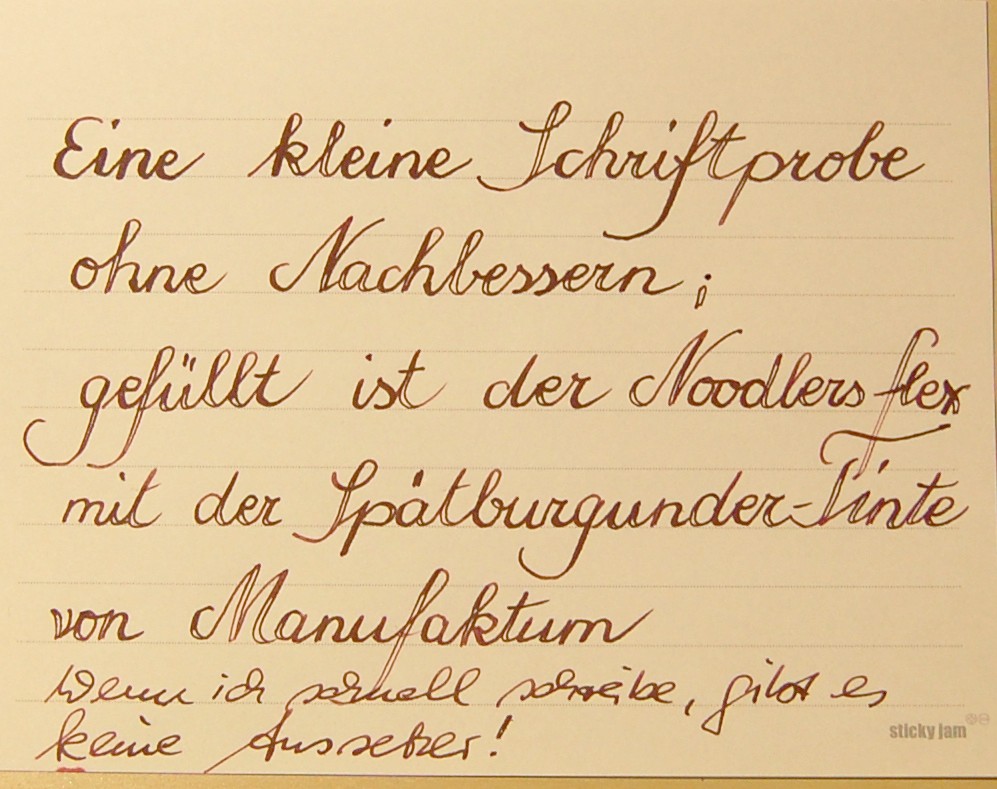 Eine kleine Schriftprobe
ohne Nachbessern ;
gefüllt ist der Noodlers flex
mit der Spätburgunder-Tinte
von Manufaktum
Wenn ich schnell schreibe, gibt es
keine Aussetzer!
sticky jam